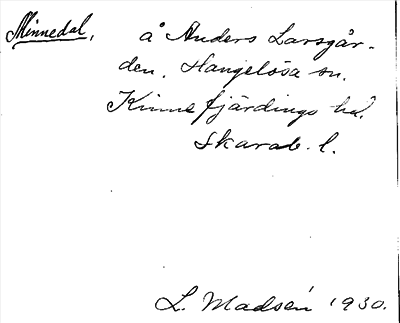 Minnedal, å Anders Larsgår-
den, Hangelösa sn.
Kinnefjärdings hd.
Skarab. l.
L. Madsén 1930.